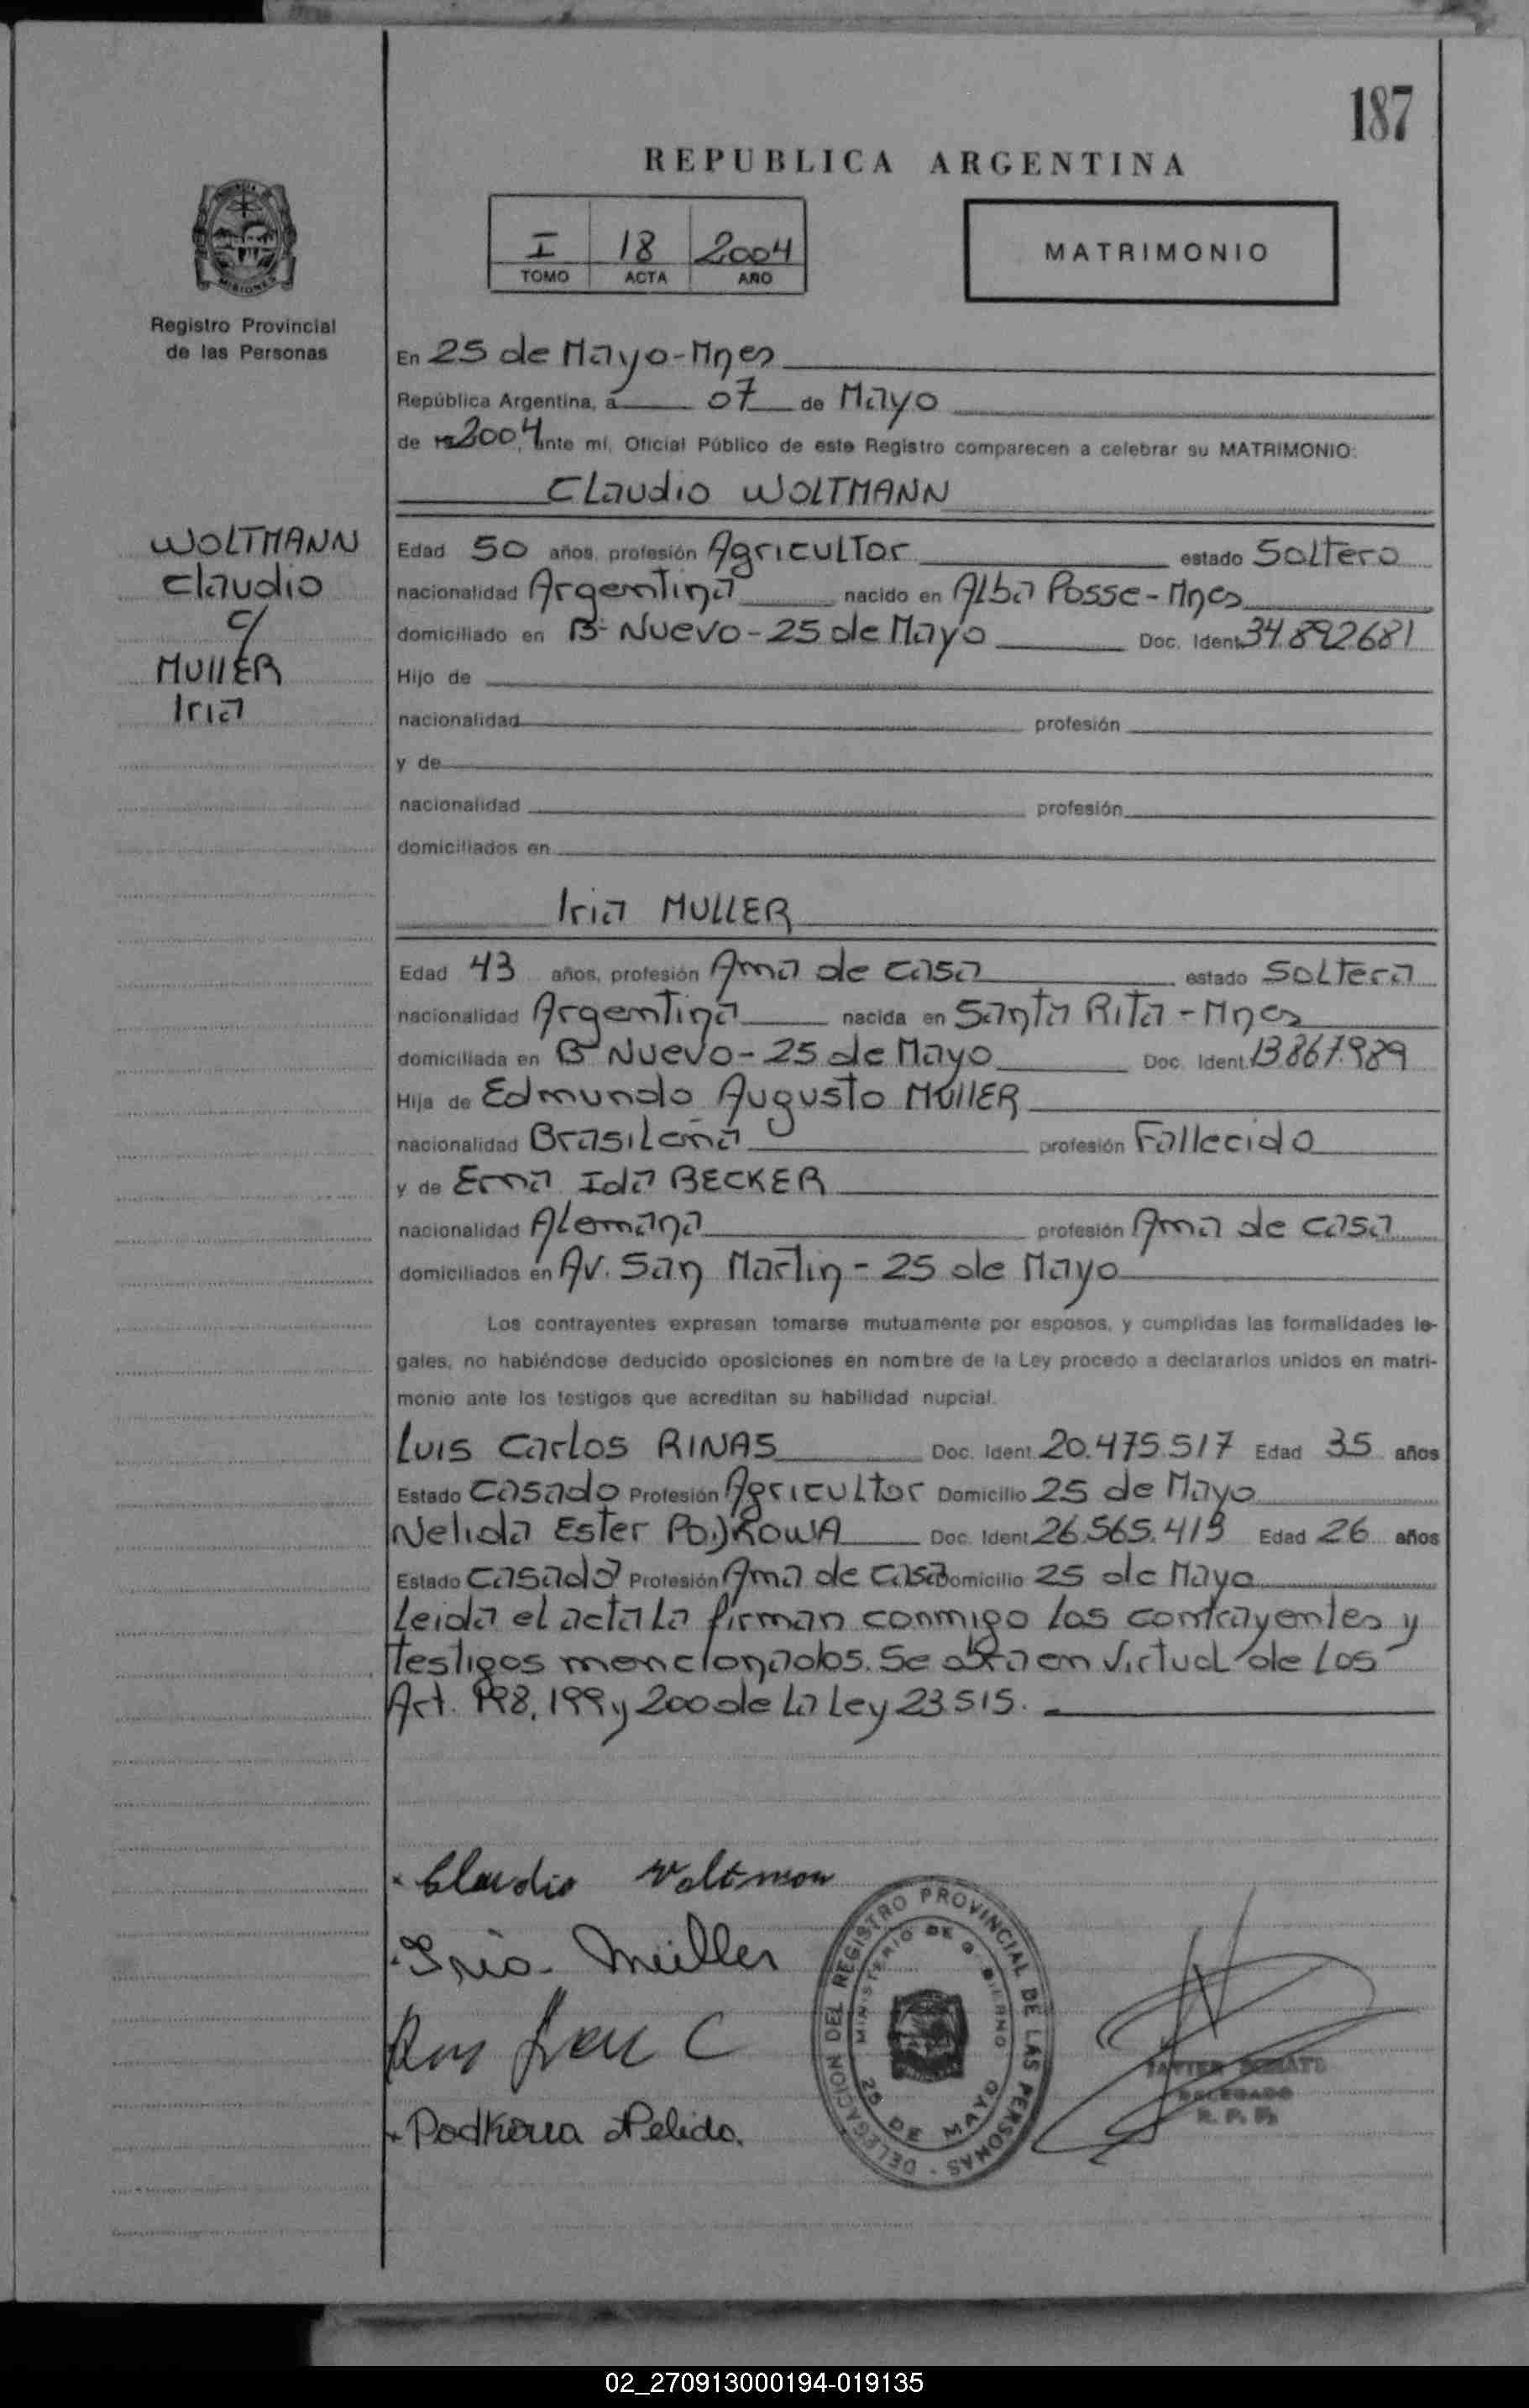 187
REPUBLICA ARGENTINA
I 18 2004
TOMO ACTA AÑO
MATRIMONIO
MISIONES
Registro Provincial
de las Personas
En 25 de Mayo-Mnes
República Argentina, a 07 de Mayo
de 19 2004, ante mí, Oficial Público de este Registro comparecen a celebrar su MATRIMONIO:
Claudio WOLTMANN
WOLTMANN
Claudio
c/
MULLER
Iria
Edad 50 años, profesión Agricultor estado Soltero
nacionalidad Argentina nacido en Alba Posse-Mnes
domiciliado en Bº Nuevo-25 de Mayo Doc. Ident. 34.892681
Hijo de
nacionalidad profesión
y de
nacionalidad profesión
domiciliados en
Iria MULLER
Edad 43 años, profesión Ama de casa estado Soltera
nacionalidad Argentina nacida en Santa Rita-Mnes
domiciliada en Bº Nuevo-25 de Mayo Doc. Ident. 13.867.989
Hija de Edmundo Augusto MULLER
nacionalidad Brasileña profesión Fallecido
y de Erna Ida BECKER
nacionalidad Alemana profesión Ama de casa
domiciliados en Av. San Martin-25 de Mayo
Los contrayentes expresan tomarse mutuamente por esposos, y cumplidas las formalidades le-
gales, no habiéndose deducido oposiciones en nombre de la Ley procedo a declararlos unidos en matri-
monio ante los testigos que acreditan su habilidad nupcial.
Luis Carlos RINAS Doc. Ident. 20.475.517 Edad 35 años
Estado Casado Profesión Agricultor Domicilio 25 de Mayo
Nelida Ester PODKOWA Doc. Ident. 26.565.419 Edad 26 años
Estado Casada Profesión Ama de casa Domicilio 25 de Mayo
Leida el acta la firman conmigo los contrayentes y
testigos mencionados. Se obra en virtud de los
Art. 198, 199 y 200 de la Ley 23.515.
Claudio Woltman
Iria Müller
Podkowa Nelida.
DELEGACION DEL REGISTRO PROVINCIAL DE LAS PERSONAS
MINISTERIO DE GOBIERNO
25 DE MAYO
JAVIER
DELEGADO
R. P. P.
02_270913000194-019135